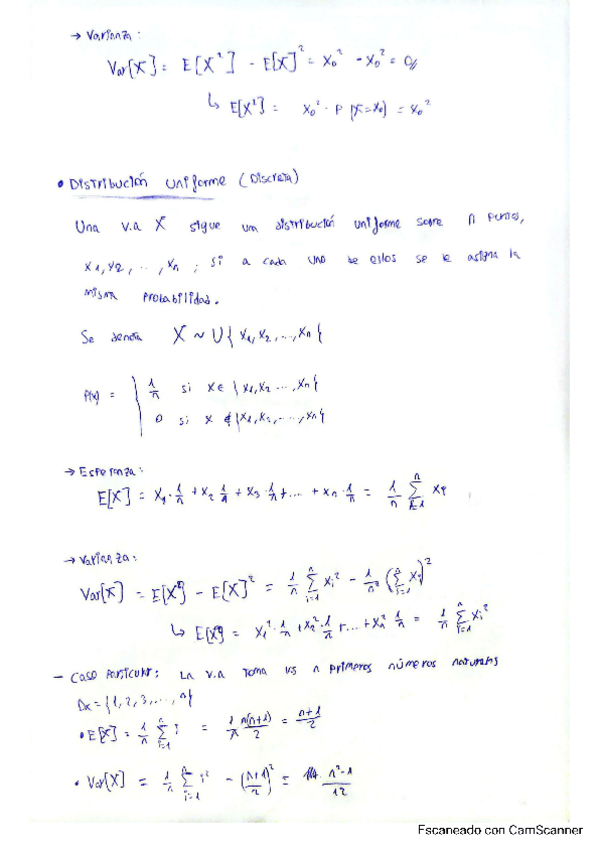 → Varianza:
Var[X] = E[X²] - E[X]² = x₀² - x₀² = 0//
↳ E[X²] = x₀² · P(X=x₀) = x₀²
• Distribución uniforme (Discreta)
Una v.a X sigue una distribución uniforme sobre n puntos,
x1, x2, ..., xn, si a cada uno de ellos se le asigna la
misma probabilidad.
Se denota X ~ U{x1, x2, ..., xn}
P(x) = { 1/n si x ∈ {x1, x2 ..., xn}
0 si x ∉ {x1, x2, ..., xn}
→ Esperanza:
E[X] = x1 · 1/n + x2 1/n + x3 · 1/n + ... + xn · 1/n = 1/n Σ xi
→ Varianza:
Var[X] = E[X²] - E[X]² = 1/n Σ_{i=1}^{n} xi² - 1/n² (Σ_{i=1}^{n} xi)²
↳ E[X²] = x1² · 1/n + x2² · 1/n + ... + xn² 1/n = 1/n Σ_{i=1}^{n} xi²
- Caso particular: La v.a toma los n primeros números naturales
Dx = {1, 2, 3, ..., n}
• E[X] = 1/n Σ_{i=1}^{n} i = 1/n n(n+1)/2 = n+1/2
• Var[X] = 1/n Σ_{i=1}^{n} i² - (n+1/2)² = n²-1/12
Escaneado con CamScanner